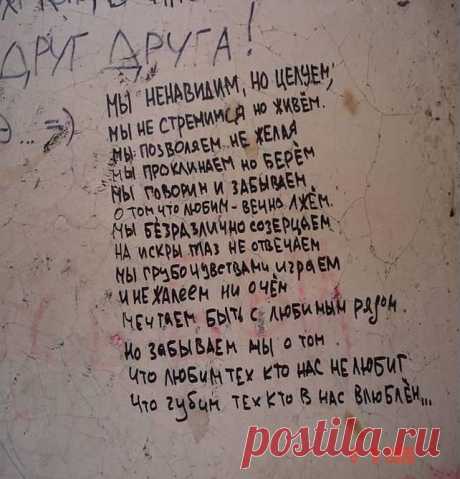 ДРУГ ДРУГА!
МЫ НЕНАВИДИМ, НО ЦЕЛУЕМ,
МЫ НЕ СТРЕМИМСЯ НО ЖИВЁМ.
МЫ ПОЗВОЛЯЕМ НЕ ЖЕЛАЯ
МЫ ПРОКЛИНАЕМ НО БЕРЁМ
МЫ ГОВОРИМ И ЗАБЫВАЕМ
О ТОМ ЧТО ЛЮБИМ - ВЕЧНО ЛЖЁМ.
МЫ БЕЗРАЗЛИЧНО СОЗЕРЦАЕМ
НА ИСКРЫ ГЛАЗ НЕ ОТВЕЧАЕМ
МЫ ГРУБО ЧУВСТВАМИ ИГРАЕМ
И НЕ ЖАЛЕЕМ НИ О ЧЁМ
МЕЧТАЕМ БЫТЬ С ЛЮБИМЫМ РЯДОМ.
НО ЗАБЫВАЕМ МЫ О ТОМ.
ЧТО ЛЮБИМ ТЕХ КТО НАС НЕ ЛЮБИТ
ЧТО ГУБИМ ТЕХ КТО В НАС ВЛЮБЛЁН...
... =)
postila.ru